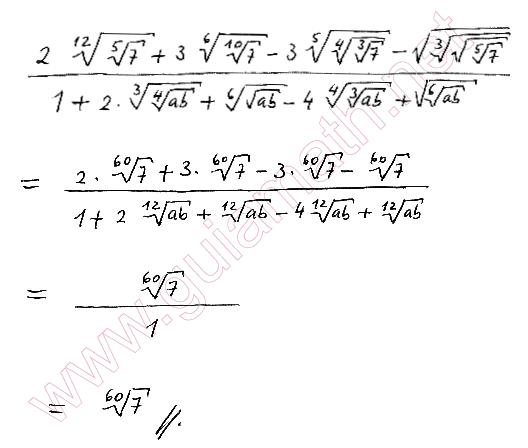 2 \sqrt[12]{\sqrt[5]{7}} + 3 \sqrt[6]{\sqrt[10]{7}} - 3 \sqrt[5]{\sqrt[4]{\sqrt[3]{7}}} - \sqrt{\sqrt[3]{\sqrt{\sqrt[5]{7}}}}
1 + 2 \cdot \sqrt[3]{\sqrt[4]{ab}} + \sqrt[6]{\sqrt{ab}} - 4 \sqrt[4]{\sqrt[3]{ab}} + \sqrt{\sqrt[6]{ab}}
= 2 \cdot \sqrt[60]{7} + 3 \cdot \sqrt[60]{7} - 3 \cdot \sqrt[60]{7} - \sqrt[60]{7}
1 + 2 \sqrt[12]{ab} + \sqrt[12]{ab} - 4 \sqrt[12]{ab} + \sqrt[12]{ab}
= \sqrt[60]{7}
1
= \sqrt[60]{7} //.
www.guiamath.net